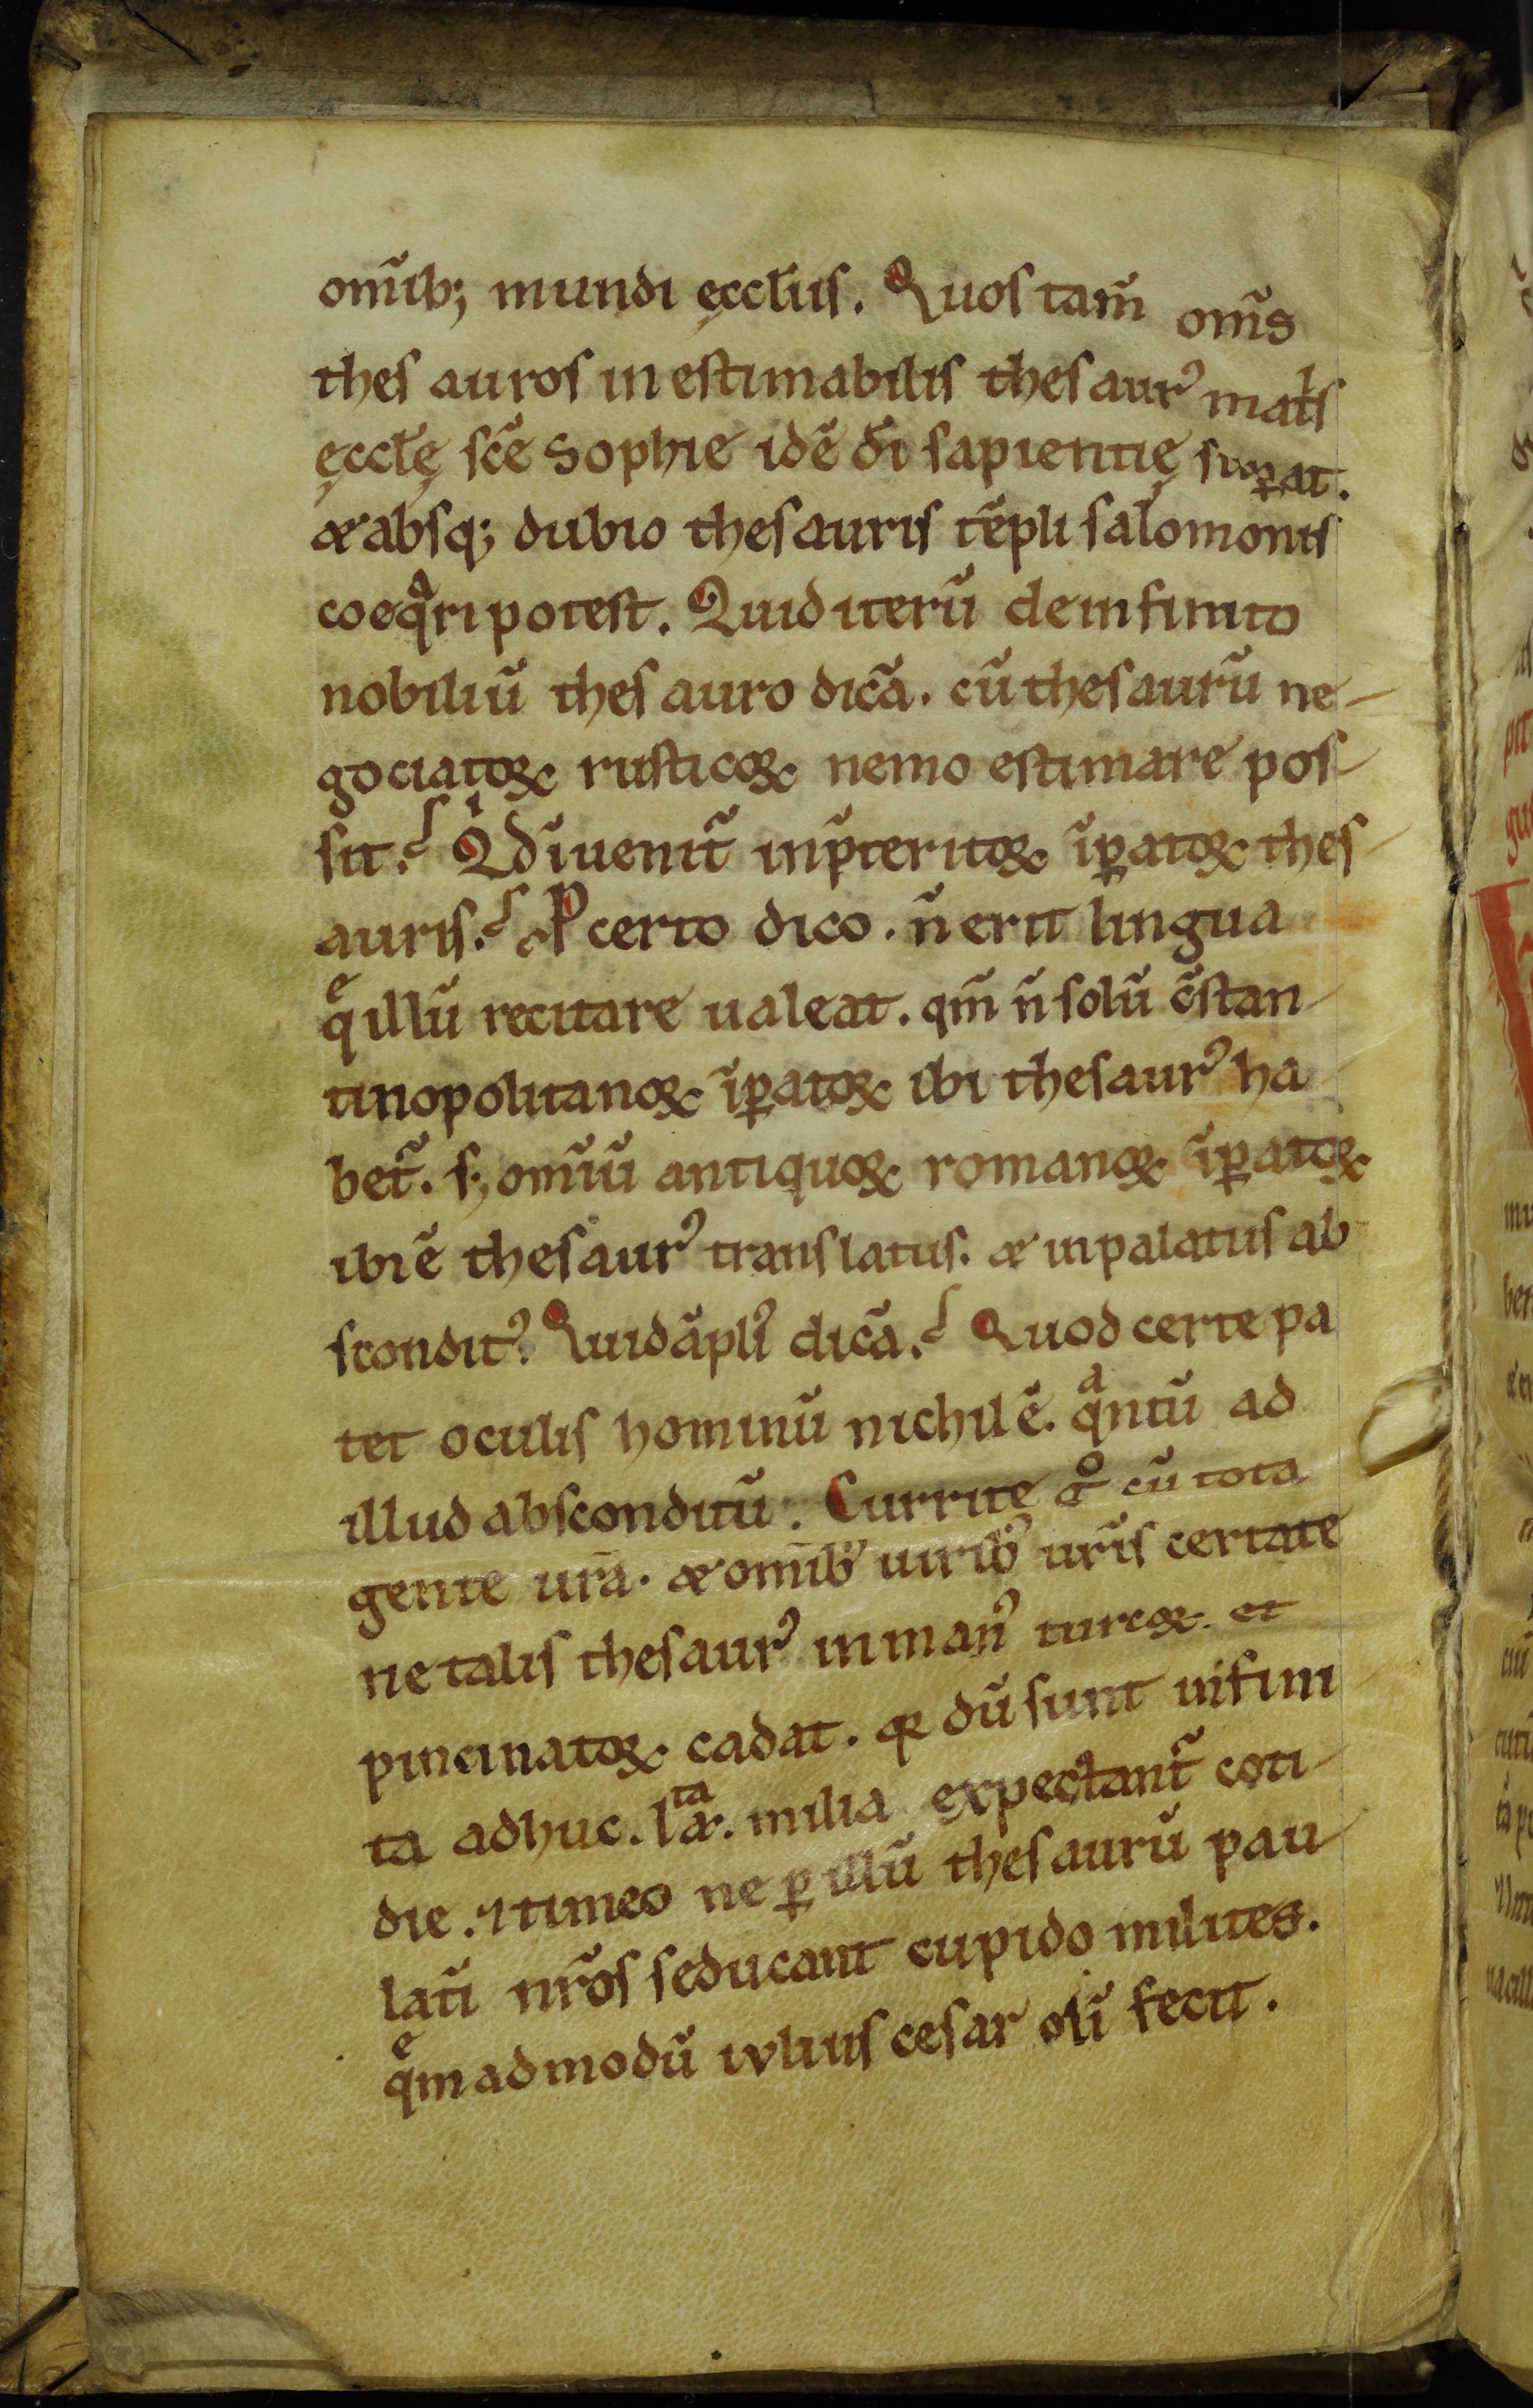 om̃ib; mundi ęccl̃iis. Quos tam̃ om̃s
thesauros inestimabilis thesaurꝰ mat̾s
ęccl̃ę sc̃e Sophie idẽ dĩ sapientię suꝑat.
& absq; dubio thesauris tẽpli salomonis
coeqͣri potest. Quid iterũ de infinito
nobiliũ thesauro dicã. cũ thesaurũ ne-
gociatoꝝ rusticoꝝ nemo estimare pos-
sit? Qͥd ĩuenit̃ in p̃teritoꝝ ĩꝑatoꝝ thes-
auris? P certo dico. ñ erit lingua
qͤ illũ recitare ualeat. qm̃ ñ solũ c̃stan-
tinopolitanoꝝ ĩꝑatoꝝ ibi thesaurꝰ ha-
bet̃. s; om̃iũ antiquoꝝ romanoꝝ ĩꝑatoꝝ
ibi ẽ thesaurꝰ translatus. & in palatiis ab-
scondit̾. Quid ãpliꝰ dicã? Quod certe pa
tet oculis hominũ nichil ẽ. qͣntũ ad
illud absconditũ. Currite gͦ cũ tota
gente ur̃a. & om̃ibꝰ uiribꝰ ur̃is certate
ne talis thesaurꝰ in manꝰ turcoꝝ. et
pincinatoꝝ cadat. q̃ dũ sunt infini
ta adhuc. lx̾ͭͣ. milia expectant̃ coti-
die. ⁊ timeo ne ꝑ illũ thesaurũ pau-
latĩ nr̃os seducant cupido milites.
qͤmadmodũ iulius cesar olĩ fecit.